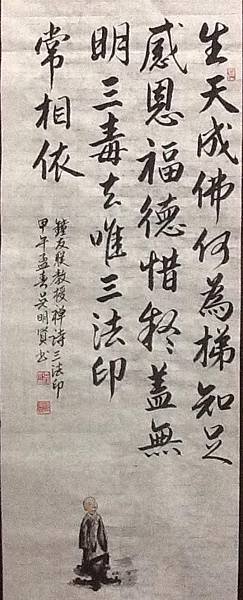 生天成佛何為梯知足
感恩福德惜癡蓋無
明三毒去唯三法印
常相依
鐘友聯教授禪詩三法印
甲午孟春吳明賢書